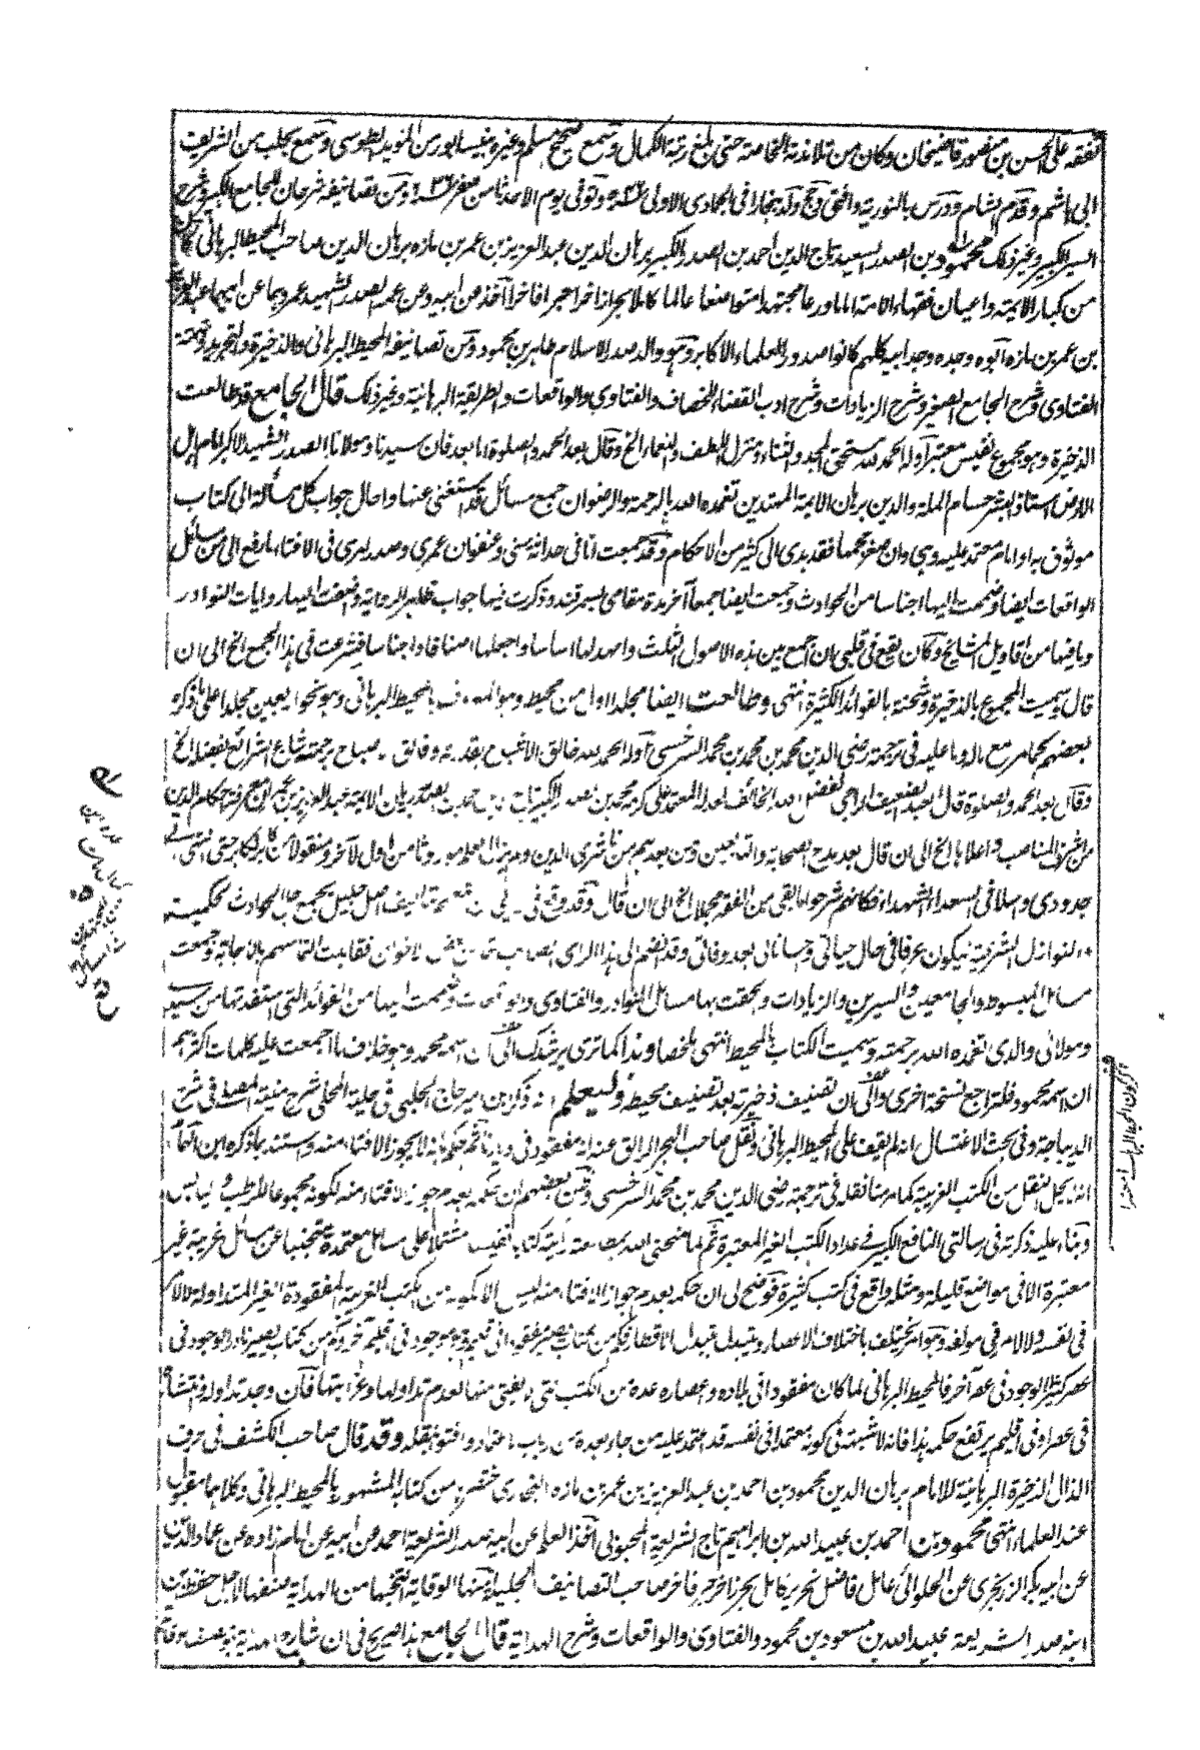 تفقه على الحسن بن منصور قاضيخان وكان من تلامذته الخاصة حتى بلغ رتبة الكمال وسمع صحيح مسلم وغيره بنيسابور من المؤيد الطوسى وسمع بحلب من الشريف
ابى هاشم وقدم الشام ودرس بالنورية وافتى وحج ولد ببخارا فى الجمادى الاولى وتوفى يوم الاحد ثامن صفر ومن تصانيفه شرحان للجامع الكبير وشرح
السير الكبير وغير ذلك محمود بن الصدر السعيد تاج الدين احمد بن الصدر الكبير برهان الدين عبد العزيز بن عمر بن مازه برهان الدين صاحب المحيط البرهانى كان
من كبار الائمة واعيان فقهاء الامة اماما ورعا مجتهدا متواضعا عالما كاملا بحرا زاخرا حبرا فاخرا اخذ عن ابيه وعن عمه الصدر الشهيد عمر وهما عن ابيهما عبد العزيز
بن عمر بن مازه ابوه وجده وجد ابيه كلهم كانوا صدور العلماء الاكابر وهو والد صدر الاسلام طاهر بن محمود ومن تصانيفه المحيط البرهانى والذخيرة والتجريد وتتمة
الفتاوى وشرح الجامع الصغير وشرح الزيادات وشرح ادب القضاء للخصاف والفتاوى والواقعات والطريقة البرهانية وغير ذلك قال الجامع قد طالعت
الذخيرة وهو مجموع نفيس معتبر اوله الحمد لله مستحق المجد والثناء ومنزل اللطف والنعماء الخ وقال بعد الحمد والصلوة اما بعد فان سيدنا ومولانا الصدر الشهيد الاكبر امام اهل
الارض استاذ البشر حسام الملة والدين برهان الائمة المهتدين تغمده الله بالرحمة والرضوان جمع مسائل قد استغنى عنها واحال جواب كل مسألة الى كتاب
موثوق به او امام معتمد عليه وهى وان صغر حجمها فقد يهدى الى كثير من الاحكام وقد جمعت انا فى حداثة سنى وعنفوان عمرى وصدر امرى فى الافتاء ما رفع الى من مسائل
الواقعات ايضا وضممت اليها اجناسا من الحوادث وجمعت ايضا جمعا آخر مدة مقامى بسمرقند وذكرت فيها جواب ظاهر الرواية واضفت اليها روايات النوادر
وما فيها من اقاويل المشايخ وكان يقع فى قلبى ان اجمع بين هذه الاصول الثلث وامهد لها اساسا واجعلها اصنافا واجناسا فشرعت فى هذا الجمع الخ الى ان
قال وسميت المجموع بالذخيرة وشحنته بالفوائد الكثيرة انتهى وطالعت ايضا مجلدا اول من محيطه وهو المعروف بالمحيط البرهانى وهو نحوا ربعين مجلدا على ما ذكره
بعضهم كما مر مع ما له وما عليه فى ترجمة رضى الدين محمد بن محمد بن محمد السرخسى اوله الحمد لله خالق الاشباح بقدرته وفالق الاصباح برحمته شارع الشرائع بفضله الخ
وقال بعد الحمد والصلوة قال العبد الضعيف الراجى لفضل الله الخائف لعدله المعتمد على كرمه محمد بن الصدر الكبير تاج الدين احمد بن الصدر برهان الائمة عبد العزيز بن عمر
من اشرف المناصب واعلاها الخ الى ان قال بعد مدح الصحابة والتابعين ومن بعدهم من ناشرى الدين ولم يزل العلم موروثا من اول لآخر ومنقولا من كابر لكابر حتى انتهى الى
جدودى واسلافى السعداء الشهداء فكانهم شرحوا ما بقى من الفقه مجملا الخ الى ان قال وقد وقع فى قلبى ان اتشبه بهم بتاليف اصل جليل يجمع جل الحوادث الحكمية
والنوازل الشرعية ليكون عرفا فى حال حياتى وحسنا لى بعد وفاتى وقد انضم الى هذا الراى الصائب التماس بعض الاخوان فقابلت التماسهم بالاجابة وجمعت
مسائل المبسوط والجامعين والسيرين والزيادات والحقت بها مسائل النوادر والفتاوى والواقعات وضممت اليها من الفوائد التى استفدتها من سيدى
ومولائى والدى تغمده الله برحمته وسميت الكتاب بالمحيط انتهى ملخصا وهذا كما ترى يرشدك الى ان اسمه محمد وهو خلاف ما اجمعت عليه كلمات اكثرهم
ان اسمه محمود فلتراجع نسخة اخرى والى ان تصنيف ذخيرته بعد تصنيف محيطه وليعلم انه ذكر ابن امير حاج الحلبى فى حلية المحلى شرح منية المصلى فى شرح
الديباجة وفى بحث الاغتسال انه لم يقف على المحيط البرهانى ونقل صاحب البحر الرائق عنه انه مفقود فى ديارنا ثم حكم بانه لا يجوز الافتاء منه واستند بما ذكره ابن الهمام
انه لا يحل النقل من الكتب الغريبة كما مر منا نقله فى ترجمة رضى الدين محمد بن محمد السرخسى وظن بعضهم ان حكمه بعدم جواز الافتاء منه لكونه مجموعا للرطب واليابس
وبناء عليه ذكرته فى رسالتى النافع الكبير فى عداد الكتب الغير المعتبرة ثم لما منحنى الله بمطالعته رايته كتابا نفيسا مشتملا على مسائل معتمدة متجنبا عن مسائل غريبة غير
معتبرة الا فى مواضع قليلة ومثله واقع فى كتب كثيرة فوضح لى ان حكمه بعدم جواز الافتاء منه ليس الا لكونه من الكتب الغريبة المفقودة الغير المتداولة لا لامر
فى نفسه ولا لامر فى مؤلفه وهو امر يختلف باختلاف الاعصار ويتبدل بتبدل الاقطار فكم من كتاب يصير مفقودا فى اقليم وهو موجود فى اقليم آخر وكم من كتاب يصير نادر الوجود فى
عصر كثير الوجود فى عصر آخر فالمحيط البرهانى لما كان مفقودا فى بلاده واعصاره عده من الكتب التى لا يفتى منها لعدم تداولها وغرابتها فان وجد تداوله وانتشاره
فى عصر او فى اقليم يرتفع حكمه هذا فانه لا شبهة فى كونه معتمدا فى نفسه قد اعتمد عليه من جاء بعده من ارباب الاعتماد وافتوا بنقله وقد قال صاحب الكشف فى حرف
الذال الذخيرة البرهانية للامام برهان الدين محمود بن احمد بن عبد العزيز بن عمر بن مازه البخارى اختصرها من كتابه المشهور بالمحيط البرهانى وكلاهما مقبول
عند العلماء انتهى محمود بن احمد بن عبيد الله بن ابراهيم تاج الشريعة المحبوبى اخذ العلم عن ابيه صدر الشريعة احمد عن ابيه عن امام زاده عن عماد الدين
عن ابيه بكر الزرنجرى عن الحلوائى عالم فاضل نحرير كامل بحر زاخر حبر فاخر صاحب التصانيف الجليلة منها الوقاية انتخبها من الهداية صنفها لاجل حفظ ابن
ابنه صدر الشريعة عبيد الله بن مسعود بن محمود والفتاوى والواقعات وشرح الهداية قال الجامع هذا صريح فى ان شارح الهداية